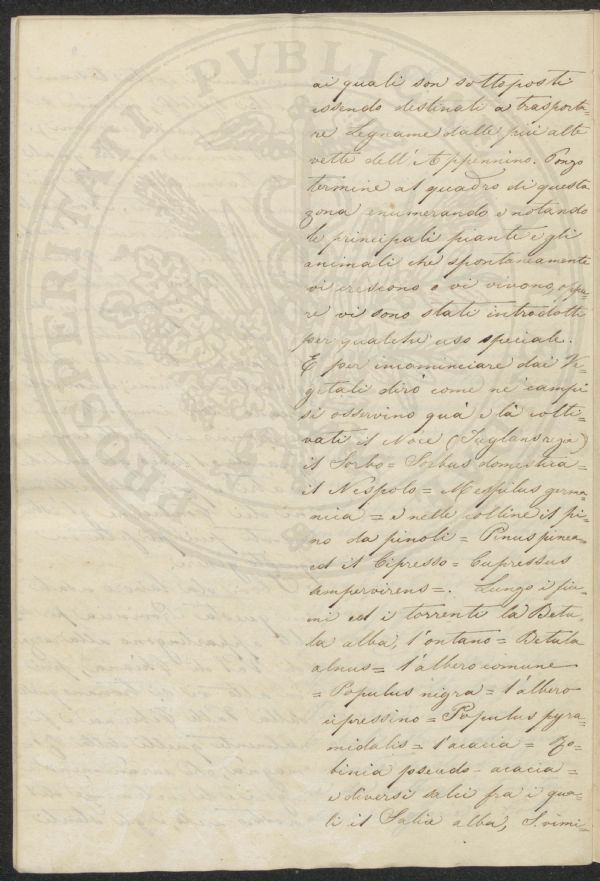 PROSPERITATI PVBLICAE
ai quali son sottoposti
essendo destinati a trasporta=
re Legname dalle più alte
vette dell'Appennino. Pongo
termine al quadro di questa
zona enumerando e notando
le principali piante e gli
animali che spontaneamente
vi crescono o vi vivono, oppu=
re vi sono stati introdotti
per qualche uso speciale.
E per incominciare dai Ve=
getali dirò come ne' campi
si osservino quà e là colti=
vati il Noce (Juglans regia)
il Sorbo = Sorbus domestica =
il Nespolo = Mespilus germa=
nica = e nelle colline il pi=
no da pinoli = Pinus pinea =
ed il Cipresso = Cupressus
sempervirens =. Lungo i fiu=
mi ed i torrenti la Betu=
la alba, l'ontano = Betula
alnus = l'albero comune
= Populus nigra = l'albero
cipressino = Populus pyra=
midalis = l'acacia = Ro=
binia pseudo-acacia =
e diversi salci fra i qua=
li il Salix alba, S. vimi=